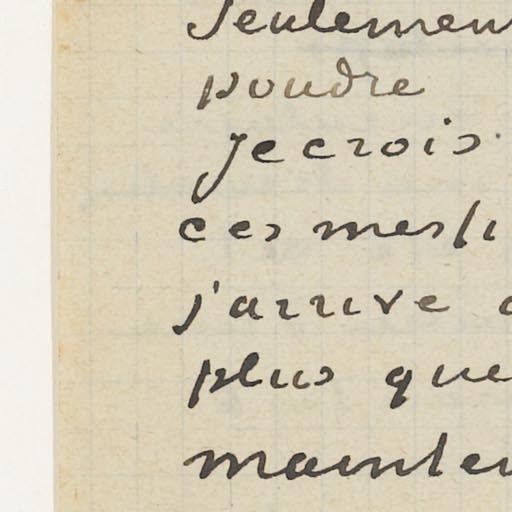 Seulemen
poudre
Je crois
ces
j'arrive
plus que
mainten